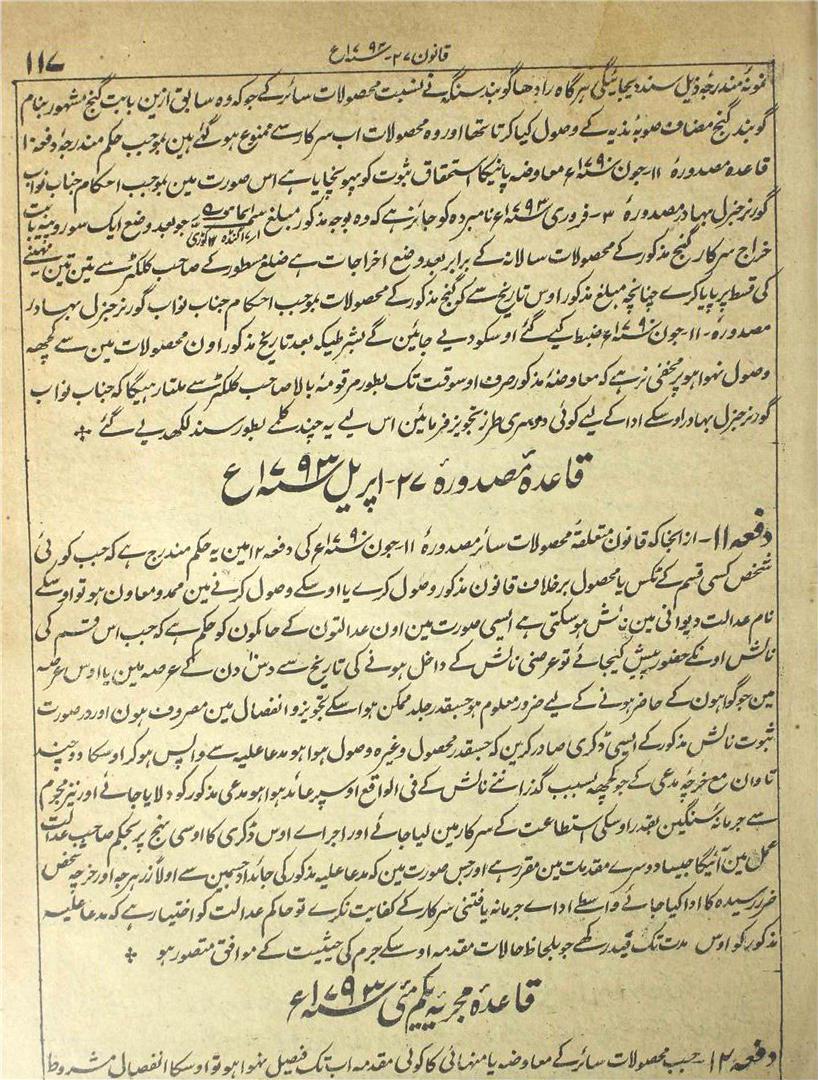 ۱۱۷
قانون ۲۷ - سنہ ۱۷۹۳ ع
نمونۂ مندرجۂ ذیل سند دیجائیگی ہرگاہ رادھا گوبند سنگہ نے نسبت محصولات سائر کے جو کہ وہ سابق ازین بابت گنج مشہور بنام
گوبند گنج مضاف صوبۂ نڈیہ کے وصول کیا کرتا تھا اور وہ محصولات اب سرکار سے ممنوع ہو گئے ہین بموجب حکم مندرجۂ دفعہ ۱۰
قاعدہ مصدورۂ ۱۱ - جون سنہ ۱۷۹۰ ع معاوضہ پانیکا استحقاق ثبوت کو پہونچایا ہے اس صورت مین بموجب احکام جناب نواب
گورنر جنرل بہادر مصدورۂ ۳ - فروری سنہ ۱۷۹۳ ع نامبردہ کو جائز ہے کہ وہ بوجہ مذکور مبلغ جو بعد وضع ایک سو روپیہ بابت
خراج سرکار گنج مذکور کے محصولات سالانہ کے برابر بعد وضع اخراجات ہے ضلع مسطور کے صاحب کلکٹر سے تین تین مہینے
کی قسط پر پایا کرے چنانچہ مبلغ مذکور اوس تاریخ سے کہ گنج مذکور کے محصولات بموجب احکام جناب نواب گورنر جنرل بہادر
مصدورۂ - ۱۱ - جون سنہ ۱۷۹۰ ع ضبط کیے گئے اوسکو دیے جائین گے بشرطیکہ بعد تاریخ مذکور اون محصولات مین سے کچھہ
وصول نہوا ہو پر مخفی نرہے کہ معاوضۂ مذکور صرف اوسوقت تک بطور مرقومۂ بالا صاحب کلکٹر سے ملتا رہیگا کہ جناب نواب
گورنر جنرل بہادر اوسکے ادا کے لیے کوئی دوسری طرز تجویز فرمائین اس لیے یہ چند کلمے بطور سند لکھہ دیے گئے ❖
قاعدۂ مصدورۂ ۲۷ - اپریل سنہ ۱۷۹۳ ع
دفعہ ۱۱ - ازانجا کہ قانون متعلقۂ محصولات سائر مصدورۂ ۱۱ - جون سنہ ۱۷۹۰ ع کی دفعہ ۱۲ مین یہ حکم مندرج ہے کہ جب کوئی
شخص کسی قسم کے ٹکس یا محصول برخلاف قانون مذکور وصول کرے یا اوسکے وصول کرنے مین ممد و معاون ہو تو اوسکے
نام عدالت دیوانی مین نالش ہو سکتی ہے ایسی صورت مین اون عدالتون کے حاکمون کو حکم ہے کہ جب اس قسم کی
نالش اونکے حضور پیش کیجائے تو عرضی نالش کے داخل ہونے کی تاریخ سے دس دن کے عرصہ مین یا اوس عرصہ
مین جو گواہون کے حاضر ہونے کے لیے ضرور معلوم ہو جسقدر جلد ممکن ہو اسکے تجویز و انفصال مین مصروف ہون اور در صورت
ثبوت نالش مذکور کے ایسی ڈکری صادر کرین کہ جسقدر محصول وغیرہ وصول ہوا ہو مدعا علیہ سے واپس ہو کر اوسکا دو چند
تاوان مع خرچۂ مدعی کے جو کچھہ بسبب گذراننے نالش کے فی الواقع اوسپر عائد ہوا ہو مدعی مذکور کو دلایا جائے اور نیز مجرم
سے جرمانۂ سنگین بقدر اوسکی استطاعت کے سرکار مین لیا جائے اور اجراے اوس ڈکری کا اوسی نہج پر بحکم صاحب عدالت
عمل مین آئیگا جیسا دوسرے مقدمات مین مقرر ہے اور جس صورت مین کہ مدعا علیہ مذکور کی جائداد جسمین سے اولاً زر ہرجہ اور خرچہ شخص
ضرر رسیدہ کا ادا کیا جائے واسطے اداے جرمانہ یافتنی سرکار کے کفایت نکرے تو حاکم عدالت کو اختیار ہے کہ مدعا علیہ
مذکور کو اوس مدت تک قید رکھے جو بلحاظ حالات مقدمہ اوسکے جرم کی حیثیت کے موافق متصور ہو ❖
قاعدۂ مجریۂ یکم مئی سنہ ۱۷۹۳ ع
دفعہ ۱۲ - جب محصولات سائر کے معاوضہ یا منہائی کا کوئی مقدمہ اب تک فیصل نہوا ہو تو اوسکا انفصال مشروط